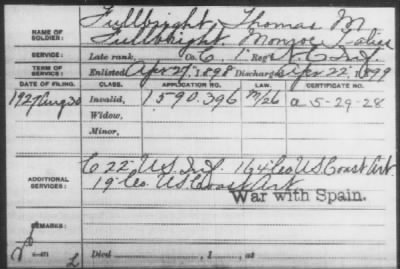 NAME OF SOLDIER: Fullbright, Thomas M
Fullbright, Monroe, alias
SERVICE: Late rank, Co. C, 1" Reg't N. C. Inf.
TERM OF SERVICE: Enlisted Apr 27, 1898 Discharged Apr 22, 1899
DATE OF FILING. CLASS. APPLICATION NO. LAW. CERTIFICATE NO.
1927 Aug 30 Invalid, 1590.396 a 5-29-28
Widow,
Minor,
ADDITIONAL SERVICES: C 22 U.S. Inf. 164 Co US Coast Art.
19 Co. US Coast Art
War with Spain.
REMARKS:
Died , 1 , at